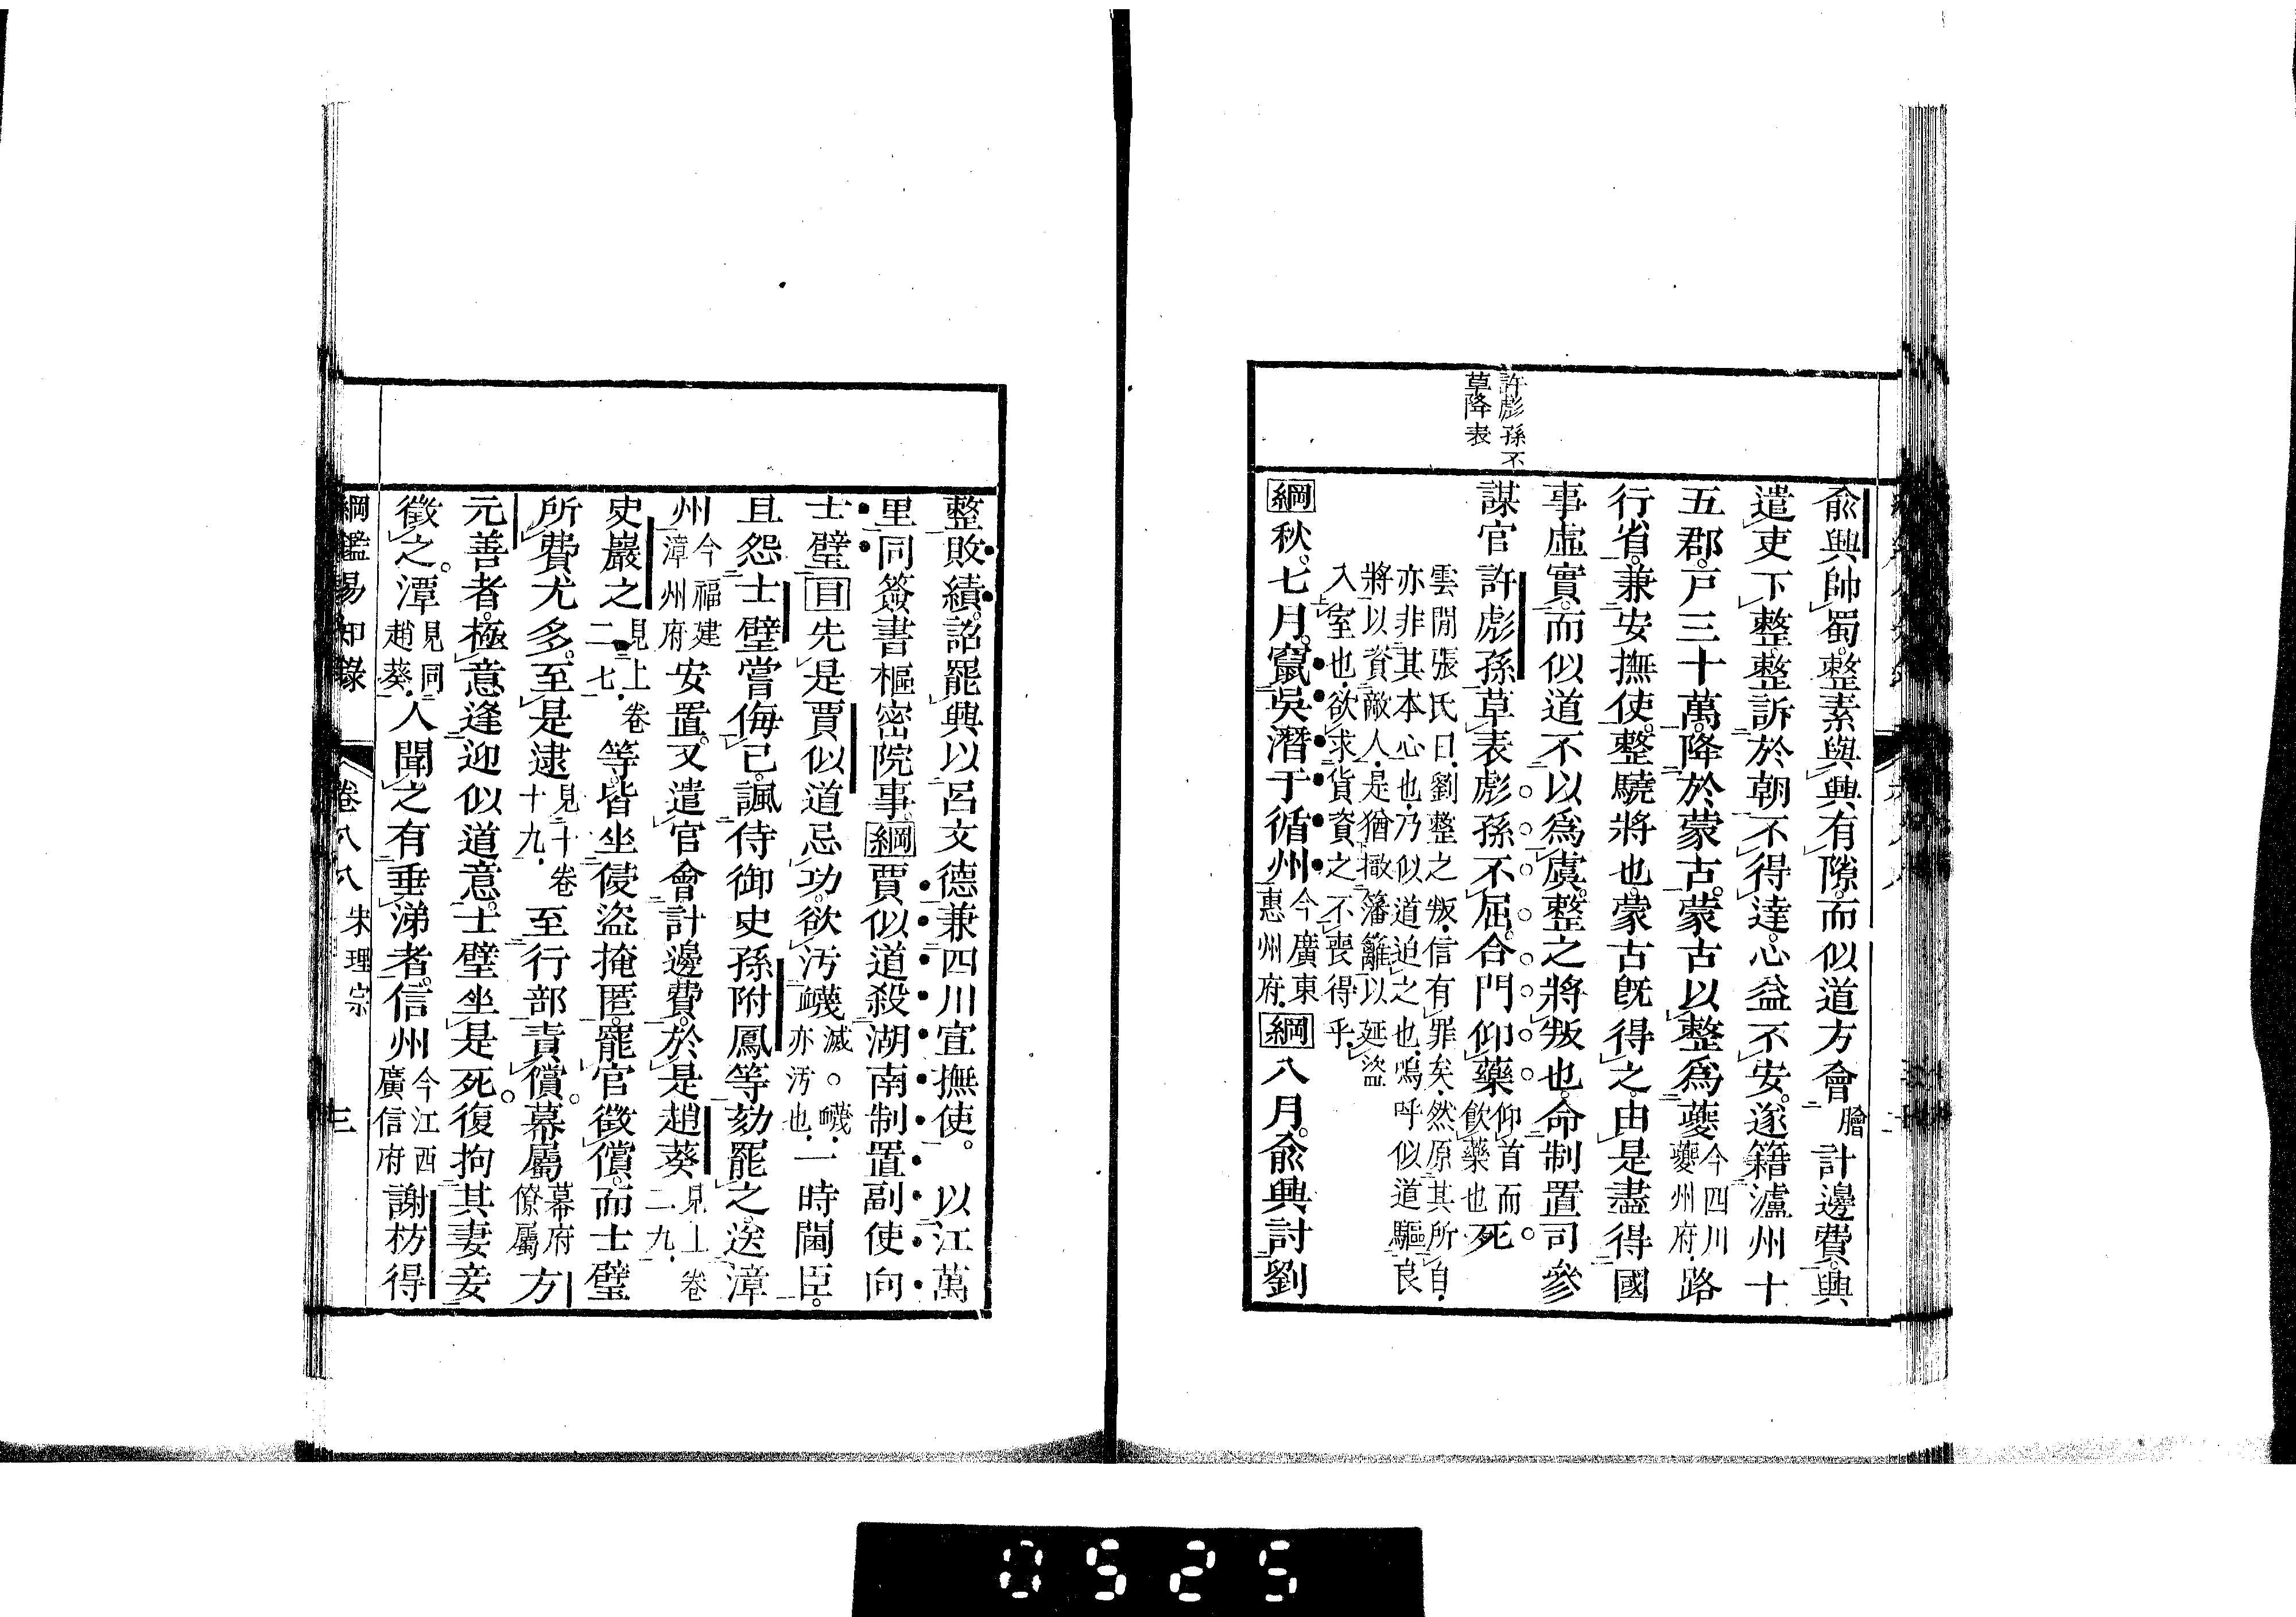 許彪孫不
草降表
俞興帥蜀。整素與興有隙。而似道方會膾計邊費。興
遣吏下整。整訴於朝不得達。心益不安。遂籍瀘州十
五郡。戶三十萬。降於蒙古。蒙古以整爲夔今四川夔州府路
行省。兼安撫使。整驍將也。蒙古旣得之。由是盡得國
事虛實。而似道不以爲虞。整之將叛也。命制置司參
謀官許彪孫草表。彪孫不屈。合門仰藥仰首而飲藥也死
雲閒張氏曰。劉整之叛。信有罪矣。然原其所自。
亦非其本心也。乃似道迫之也。嗚呼似道驅良
將以資敵人。是猶撤藩籬以延盜
入室也。欲求貨資之不喪得乎。
綱秋。七月。竄吳潛于循州今廣東惠州府。綱八月。俞興討劉
整敗績。詔罷興以呂文德兼四川宣撫使。以江萬
里同簽書樞密院事。綱賈似道殺湖南制置副使向
士璧目先是賈似道忌功。欲汚衊滅。衊。亦汚也。一時閫臣。
且怨士璧嘗侮己。諷侍御史孫附鳳等劾罷之。送漳
州今福建漳州府安置。又遣官會計邊費。於是趙葵見上卷二九。
史巖之見上卷二七。等。皆坐侵盜掩匿。罷官徵償。而士璧
所費尤多。至是逮見十卷十九。至行部責償。幕屬幕府僚屬方
元善者。極意逢迎似道意。士璧坐是死。復拘其妻妾
徵之。潭見同趙葵。人聞之有垂涕者。信州今江西廣信府謝枋得
綱鑑易知錄 卷八八 宋理宗 三
0525